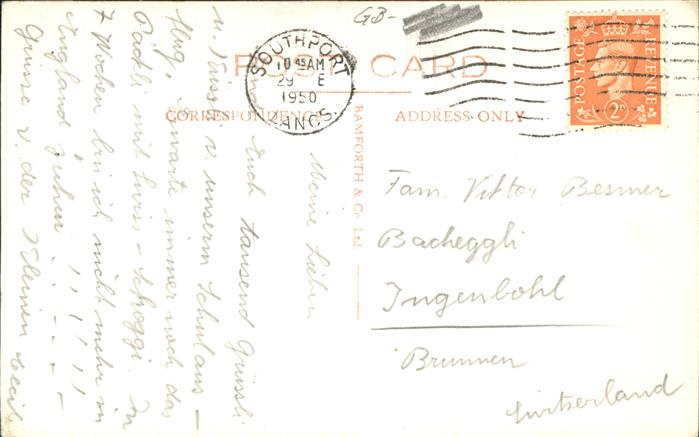 GB-
POST CARD
SOUTHPORT
10 45 AM
29
1950
LANCS
POSTAGE
REVENUE
2D
CORRESPONDENCE
ADDRESS ONLY
BAMFORTH & Co. Ltd.
Meine Lieben
Euch tausend Grüssli
u. v. unserm Schulaus-
flug warte immer noch das
Päckli mit Swiss-Schoggi. In
7 Wochen bin ich nicht mehr in
England juhui !!!!!!!
Grüsse v. der Kleinen Cecil
Fam. Viktor Besmer
Bacheggli
Ingenbohl
Brunnen
Switzerland